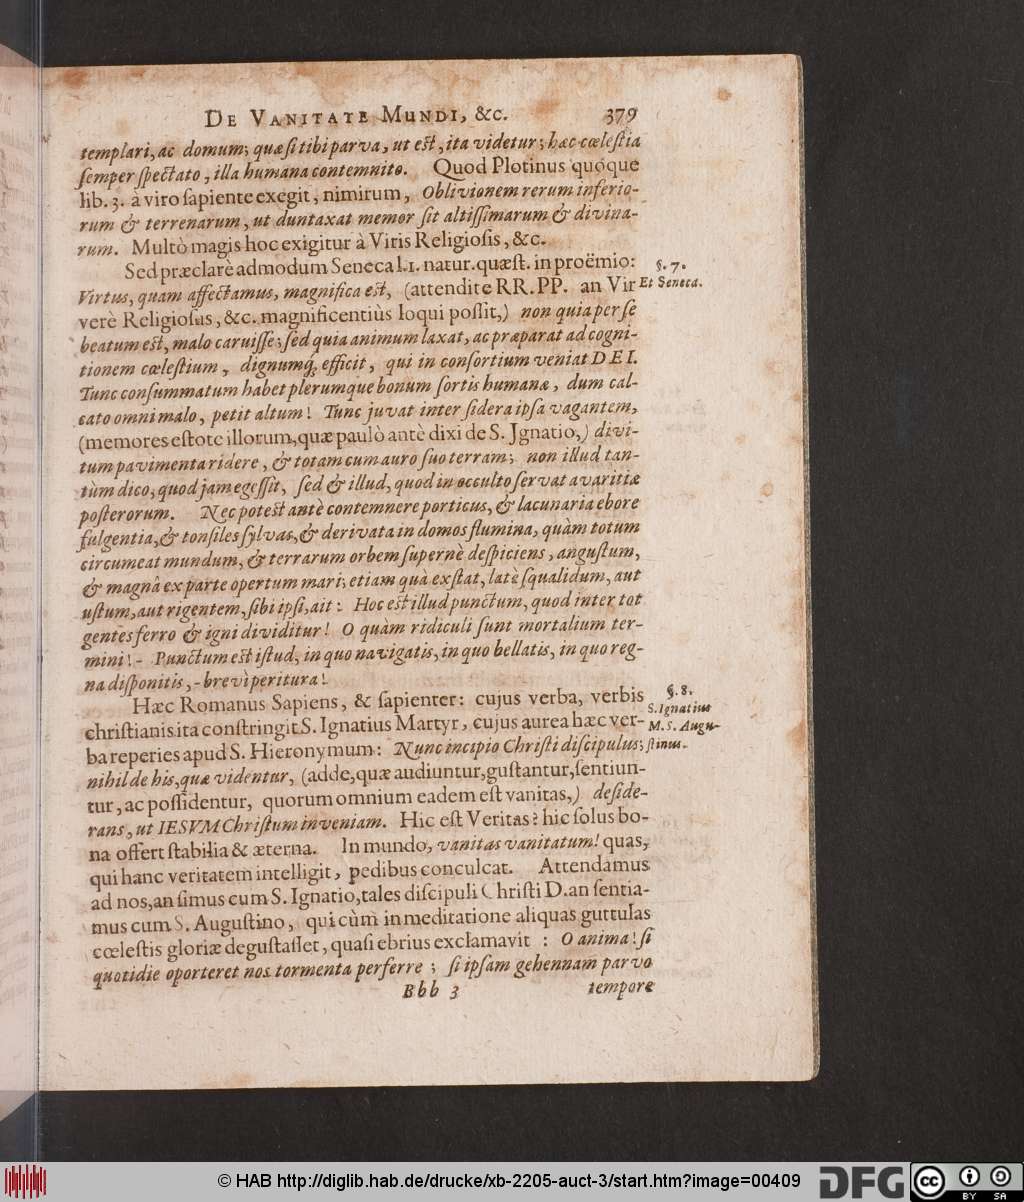 De Vanitate Mundi, &c. 379
templari, ac domum; quæ si tibi parva, ut est, ita videtur; hæc cœlestia
semper spectato, illa humana contemnito. Quod Plotinus quoque
lib. 3. à viro sapiente exegit, nimirum, Oblivionem rerum inferio-
rum & terrenarum, ut duntaxat memor sit altissimarum & divina-
rum. Multò magis hoc exigitur à Viris Religiosis, &c.
Sed præclarè admodum Seneca l.1. natur. quæst. in proëmio:
§. 7.
Et Seneca.
Virtus, quam affectamus, magnifica est, (attendite RR. PP. an Vir
verè Religiosus, &c. magnificentius loqui possit,) non quia per se
beatum est, malo caruisse; sed quia animum laxat, ac præparat ad cogni-
tionem cœlestium, dignumq́; efficit, qui in consortium veniat DEI.
Tunc consummatum habet plerumque bonum sortis humanæ, dum cal-
cato omni malo, petit altum! Tunc juvat inter sidera ipsa vagantem,
(memores estote illorum, quæ paulò antè dixi de S. Jgnatio,) divi-
tum pavimenta ridere, & totam cum auro suo terram; non illud tan-
tùm dico, quod jam egessit, sed & illud, quod in occulto servat avaritiæ
posterorum. Nec potest antè contemnere porticus, & lacunaria ebore
fulgentia, & tonsiles sylvas, & derivata in domos flumina, quàm totum
circumeat mundum, & terrarum orbem supernè despiciens, angustum,
& magnâ ex parte opertum mari; etiam quà exstat, latè squalidum, aut
ustum, aut rigentem, sibi ipsi, ait: Hoc est illud punctum, quod inter tot
gentes ferro & igni dividitur! O quàm ridiculi sunt mortalium ter-
mini! - Punctum est istud, in quo navigatis, in quo bellatis, in quo reg-
na disponitis, - brevi peritura!
Hæc Romanus Sapiens, & sapienter: cujus verba, verbis
§. 8.
S. Ignatius
M. S. Augu-
stinus.
christianis ita constringit S. Ignatius Martyr, cujus aurea hæc ver-
ba reperies apud S. Hieronymum: Nunc incipio Christi discipulus;
nihil de his, quæ videntur, (adde, quæ audiuntur, gustantur, sentiun-
tur, ac possidentur, quorum omnium eadem est vanitas,) deside-
rans, ut IESVM Christum inveniam. Hic est Veritas? hic solus bo-
na offert stabilia & æterna. In mundo, vanitas vanitatum! quas,
qui hanc veritatem intelligit, pedibus conculcat. Attendamus
ad nos, an simus cum S. Ignatio, tales discipuli Christi D. an sentia-
mus cum S. Augustino, qui cùm in meditatione aliquas guttulas
cœlestis gloriæ degustasset, quasi ebrius exclamavit : O anima! si
quotidie oporteret nos tormenta perferre ; si ipsam gehennam parvo
Bbb 3 tempore
© HAB http://diglib.hab.de/drucke/xb-2205-auct-3/start.htm?image=00409
DFG
cc BY SA